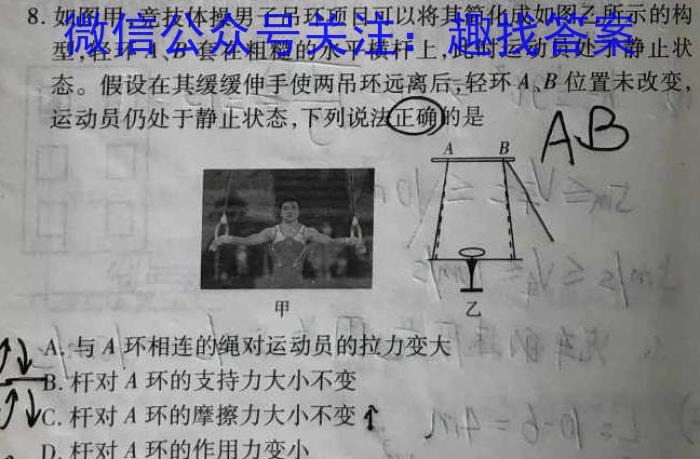 8. 如图甲,竞技体操男子吊环项目可以将其简化成如图乙所示的构
微信公众号关注：趣找答案
型,轻环 A、B 套在粗糙的水平横杆上,此时运动员处于静止状
态。假设在其缓缓伸手使两吊环远离后,轻环 A、B 位置未改变,
运动员仍处于静止状态,下列说法正确的是
AB
A B
甲 乙
A. 与 A 环相连的绳对运动员的拉力变大
B. 杆对 A 环的支持力大小不变
C. 杆对 A 环的摩擦力大小不变 ↑
D. 杆对 A 环的作用力变小